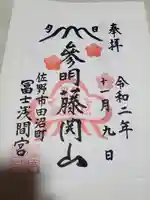 奉拝
令和二年
十一月九日
夕日
參明藤開山
佐野市田沼町
冨士浅間宮